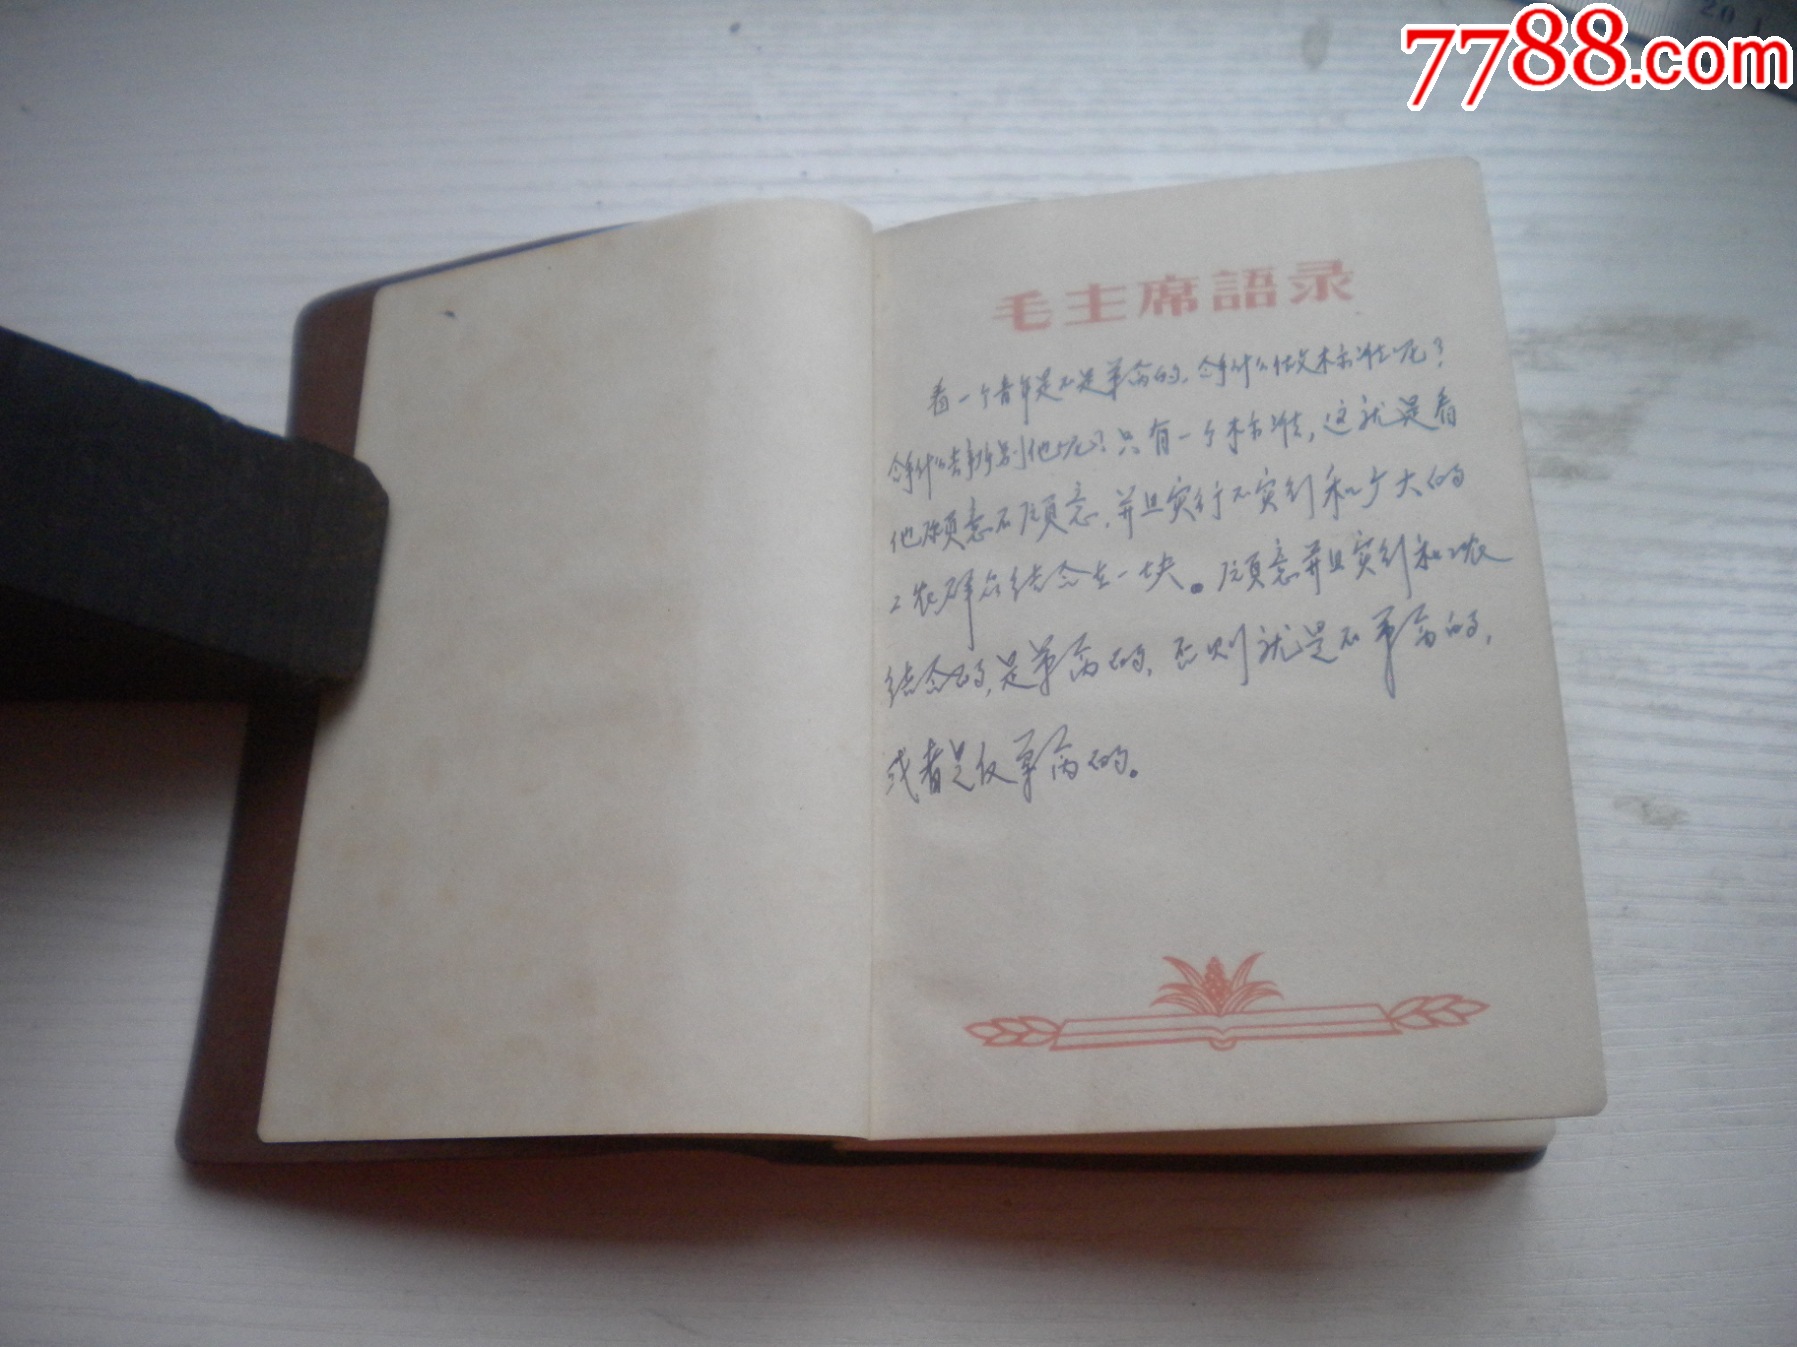 7788.com
20 1
毛主席語录
看一个青年是不是革命的，拿什么做标准呢？
拿什么去辨别他呢？只有一个标准，这就是看
他愿意不愿意，并且实行不实行和广大的
工农群众结合在一块。愿意并且实行和工农
结合的，是革命的，否则就是不革命的，
或者是反革命的。